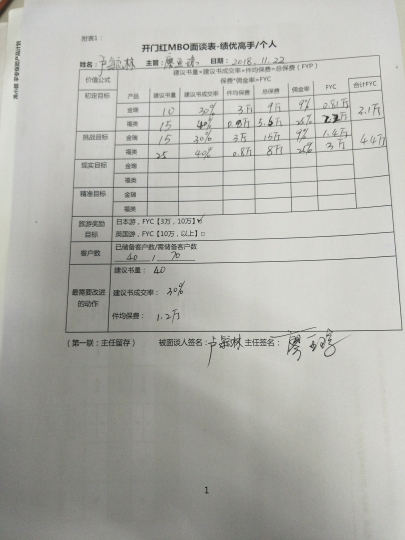 附表1：
开门红MBO面谈表-绩优高手/个人
姓名： 主管： 日期：2018.11.22
价值公式 建议书量*建议书成交率*件均保费=总保费（FYP）
保费*佣金率=FYC
初定目标 产品 建议书量 建议书成交率 件均保费 总保费 佣金率 FYC 合计FYC
金瑞 10 30% 3万 9万 9% 0.81万
福类 15 40% 5.6万 2.1万
挑战目标 金瑞 15 30% 3万 15万 9% 1.4万
福类 25 40% 0.8万 8万 3万 4.4万
现实目标 金瑞
福类
精准目标 金瑞
福类
旅游奖励 日本游，FYC【3万，10万】☑
目标 英国游，FYC【10万，以上】□
客户数 已储备客户数/需储备客户数
40 / 70
最需要改进
的动作
建议书量：40
建议书成交率：30%
件均保费：1.2万
（第一联：主任留存） 被面谈人签名： 主任签名：
1